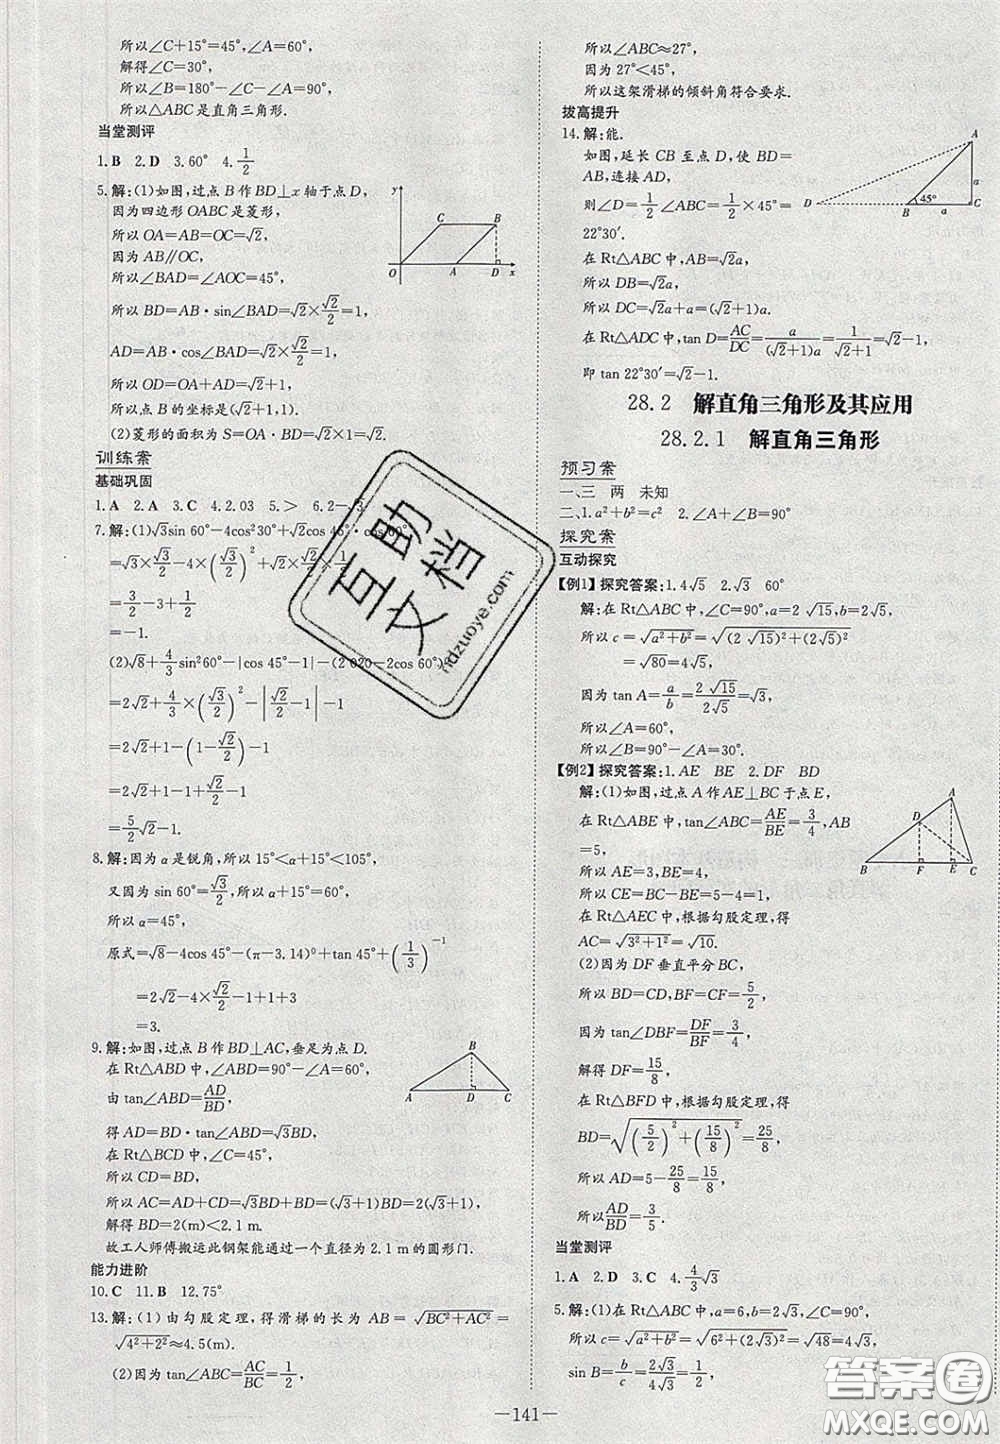 所以∠C+15°=45°,∠A=60°,
解得∠C=30°,
所以∠B=180°-∠C-∠A=90°,
所以△ABC是直角三角形.
当堂测评
1.B 2.D 3.60° 4.1/2
5.解:(1)如图,过点B作BD⊥x轴于点D,
因为四边形OABC是菱形,
所以OA=AB=OC=√2,
因为AB∥OC,
所以∠BAD=∠AOC=45°,
所以BD=AB·sin∠BAD=√2×√2/2=1,
AD=AB·cos∠BAD=√2×√2/2=1,
所以OD=OA+AD=√2+1,
所以点B的坐标是(√2+1,1).
(2)菱形的面积为S=OA·BD=√2×1=√2.
y
C B
O A D x
训练案
基础巩固
1.A 2.A 3.C 4.2.03 5.> 6.2-√3
7.解:(1)√3sin 60°-4cos²30°+√2cos 45°·cos 60°
=√3×√3/2-4×(√3/2)²+√2×
=3/2-3+1/2
=-1.
(2)√8+4/3sin²60°-|cos 45°-1|-(2 020-2cos 60°)⁰
=2√2+4/3×(√3/2)²-|√2/2-1|-1
=2√2+1-(1-√2/2)-1
=2√2+1-1+√2/2-1
=5/2√2-1.
8.解:因为α是锐角,所以15°<α+15°<105°,
又因为sin 60°=√3/2,所以α+15°=60°,
所以α=45°,
原式=√8-4cos 45°-(π-3.14)⁰+tan 45°+(1/3)⁻¹
=2√2-4×√2/2-1+1+3
=3.
9.解:如图,过点B作BD⊥AC,垂足为点D.
在Rt△ABD中,∠ABD=90°-∠A=60°,
由tan∠ABD=AD/BD,
得AD=BD·tan∠ABD=√3BD,
在Rt△BCD中,∠C=45°,
所以CD=BD,
所以AC=AD+CD=√3BD+BD=(√3+1)BD=2√3+2,
解得BD=2(m)<2.1 m.
故工人师傅搬运此钢架能通过一个直径为2.1 m的圆形门.
B
A D C
能力进阶
10.C 11.B 12.75°
13.解:(1)由勾股定理,得滑梯的长为AB=√(BC²+AC²)=
√(4²+2²)≈4.5(m).
(2)因为tan∠ABC=AC/BC=1/2,
所以∠ABC≈27°,
因为27°<45°,
所以这架滑梯的倾斜角符合要求.
拔高提升
14.解:能.
如图,延长CB至点D,使BD=
AB,连接AD,
则∠D=1/2∠ABC=1/2×45°=
22°30′.
在Rt△ABC中,AB=√2a,
所以DB=√2a,
所以DC=√2a+a=(√2+1)a.
在Rt△ADC中,tan D=AC/DC=a/(√2+1)a=1/(√2+1)=√2-1,
即tan 22°30′=√2-1.
A
a
D B 45° a C
28.2 解直角三角形及其应用
28.2.1 解直角三角形
预习案
一、三 两 未知
二、1.a²+b²=c² 2.∠A+∠B=90°
探究案
互动探究
【例1】探究答案:1.4√5 2.√3 60°
解:在Rt△ABC中,∠C=90°,a=2√15,b=2√5,
所以c=√(a²+b²)=√((2√15)²+(2√5)²)
=√80=4√5,
因为tan A=a/b=2√15/2√5=√3,
所以∠A=60°,
所以∠B=90°-∠A=30°.
【例2】探究答案:1.AE BE 2.DF BD
解:(1)如图,过点A作AE⊥BC于点E,
在Rt△ABE中,tan∠ABC=AE/BE=3/4,AB
=5,
所以AE=3,BE=4,
所以CE=BC-BE=5-4=1,
在Rt△AEC中,根据勾股定理,得
AC=√(3²+1²)=√10.
(2)因为DF垂直平分BC,
所以BD=CD,BF=CF=5/2,
因为tan∠DBF=DF/BF=3/4,
解得DF=15/8,
在Rt△BFD中,根据勾股定理,得
BD=√((5/2)²+(15/8)²)=25/8,
所以AD=5-25/8=15/8,
所以AD/BD=3/5.
A
D
B F E C
当堂测评
1.A 2.D 3.C 4.4/3√3
5.解:(1)在Rt△ABC中,a=6,b=2√3,∠C=90°,
所以c=√(a²+b²)=√(6²+(2√3)²)=√48=4√3,
sin B=b/c=2√3/4√3=1/2,
—141—
互助文档
hdzuoye.com
答案圈
MXQE.COM